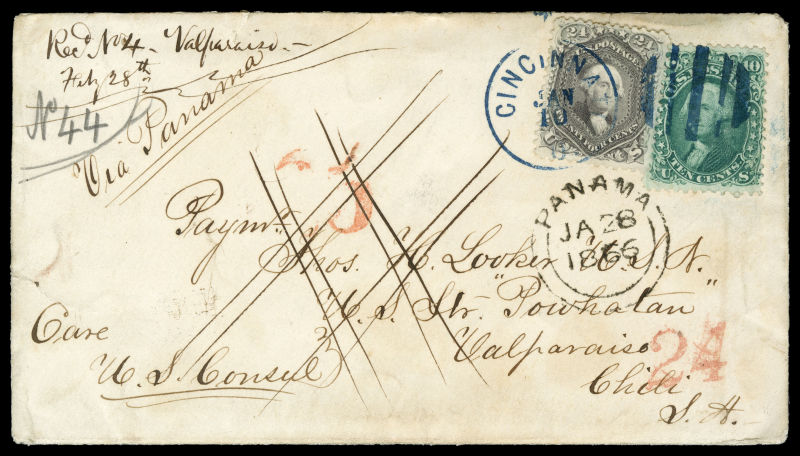 Recd No 4 - Valparaiso -
Feby 28th
No 44
Via Panama
CINCINNA
JAN
10
24 U.S. POSTAGE 24
TWENTY FOUR CENTS
10
TEN CENTS
U S
PANAMA
JA 28
1866
25
Paymr.
Thos. H. Looker U.S.N.
U.S. Str. "Powhatan"
Care
Valparaiso
U.S. Consul
Chili
24
S.A.